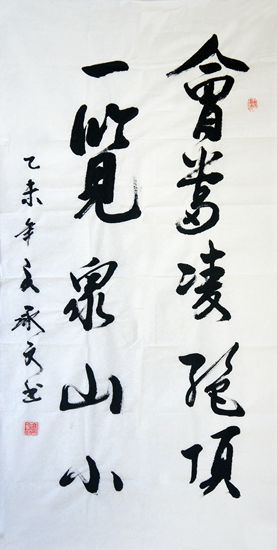 會當凌絕頂
一覽衆山小
乙未年夏承文书